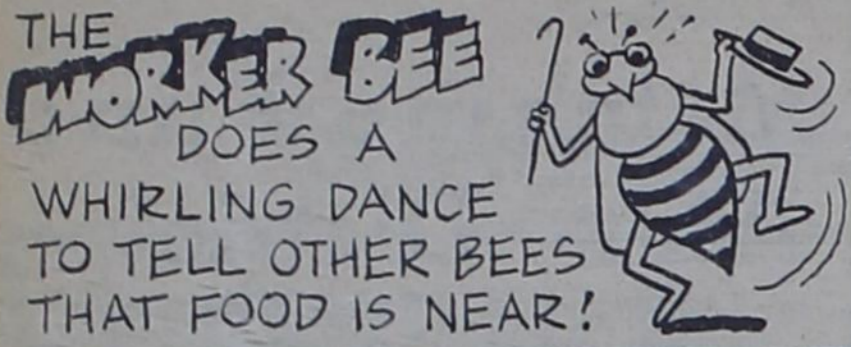 THE
WORKER BEE
DOES A
WHIRLING DANCE
TO TELL OTHER BEES
THAT FOOD IS NEAR!